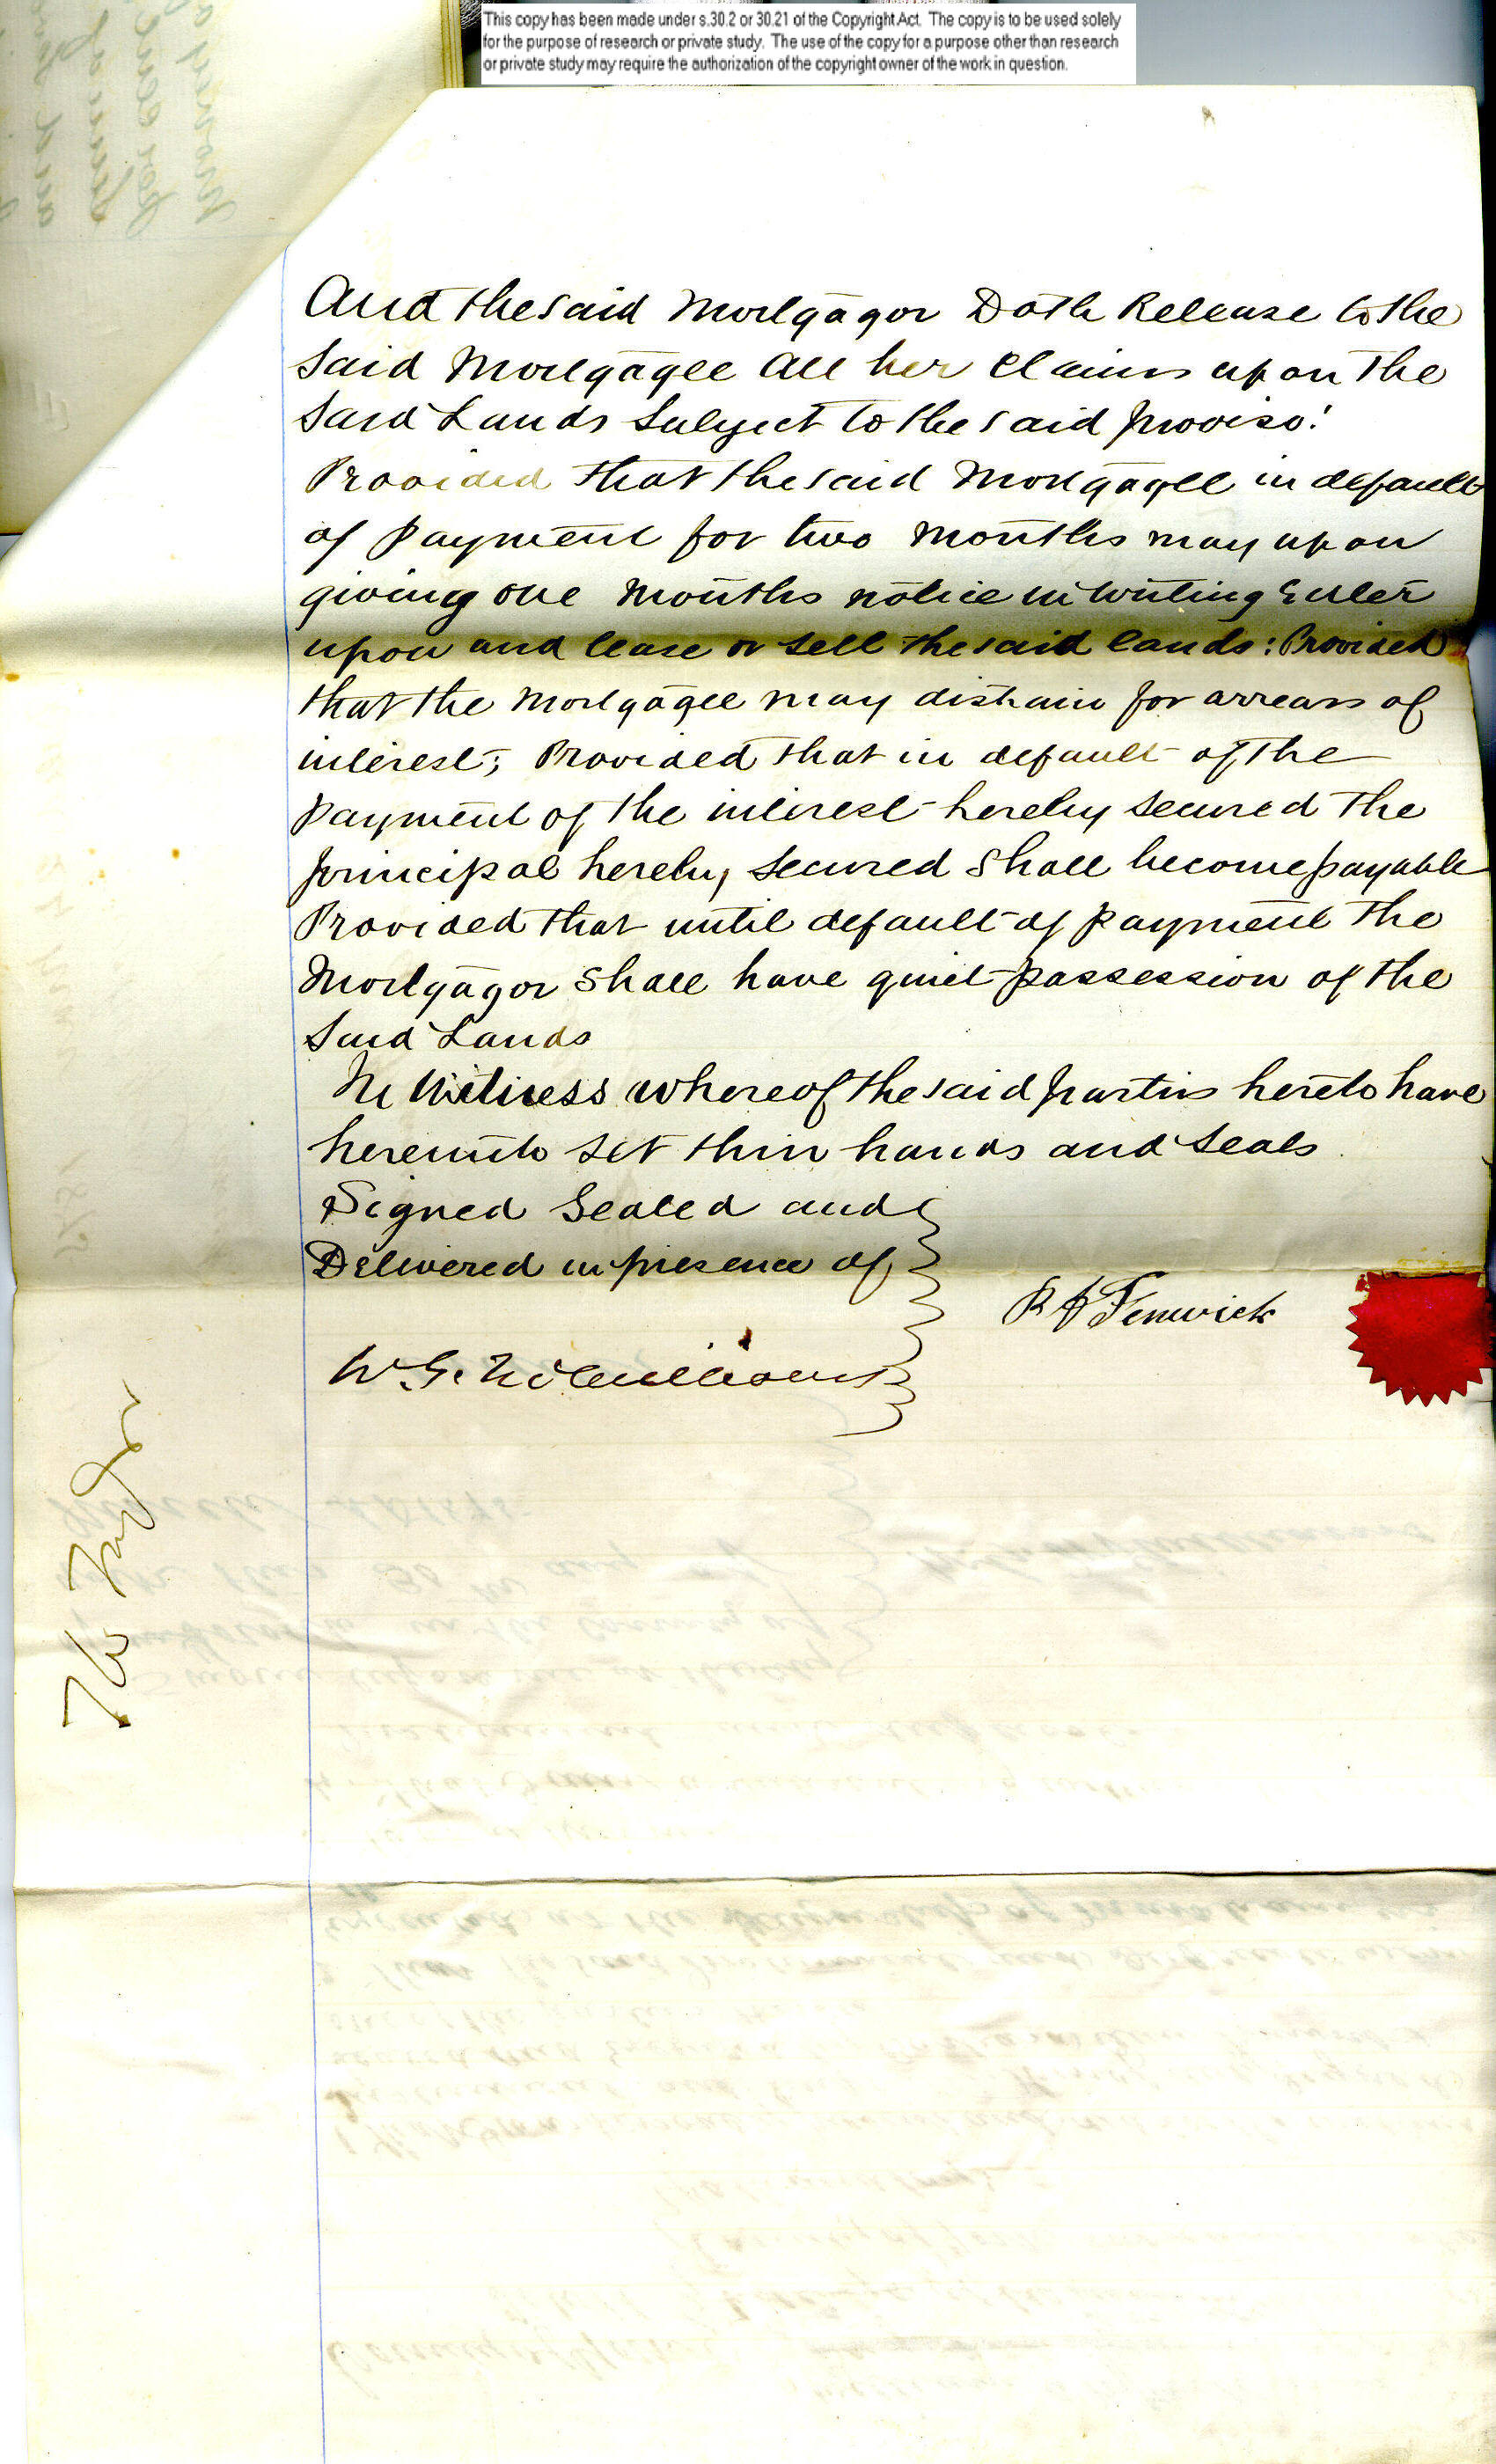 This copy has been made under s.30.2 or 30.21 of the Copyright Act. The copy is to be used solely
for the purpose of research or private study. The use of the copy for a purpose other than research
or private study may require the authorization of the copyright owner of the work in question.
And the said Mortgagor Doth Release to the
said Mortgagee all her Claims upon the
said Lands subject to the said proviso:
Provided that the said Mortgagee in default
of payment for two months may upon
giving one months notice in writing Enter
upon and lease or sell the said lands: Provided
that the Mortgagee may distrain for arrears of
interest; Provided that in default of the
payment of the interest hereby secured the
principal hereby secured shall become payable
Provided that until default of payment the
Mortgagor shall have quiet possession of the
said Lands
In Witness whereof the said parties hereto have
hereunto set their hands and seals
Signed Sealed and
Delivered in presence of
R A Fenwick
W. G. McWilliams